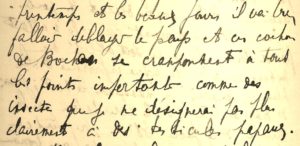 printemps et les beaux jours il va bien
falloir déblayer le pays et ces cochons
de Boches se cramponnent à tous
les points importants comme des
insectes que je ne désignerai pas plus
clairement à des testicules papaux.